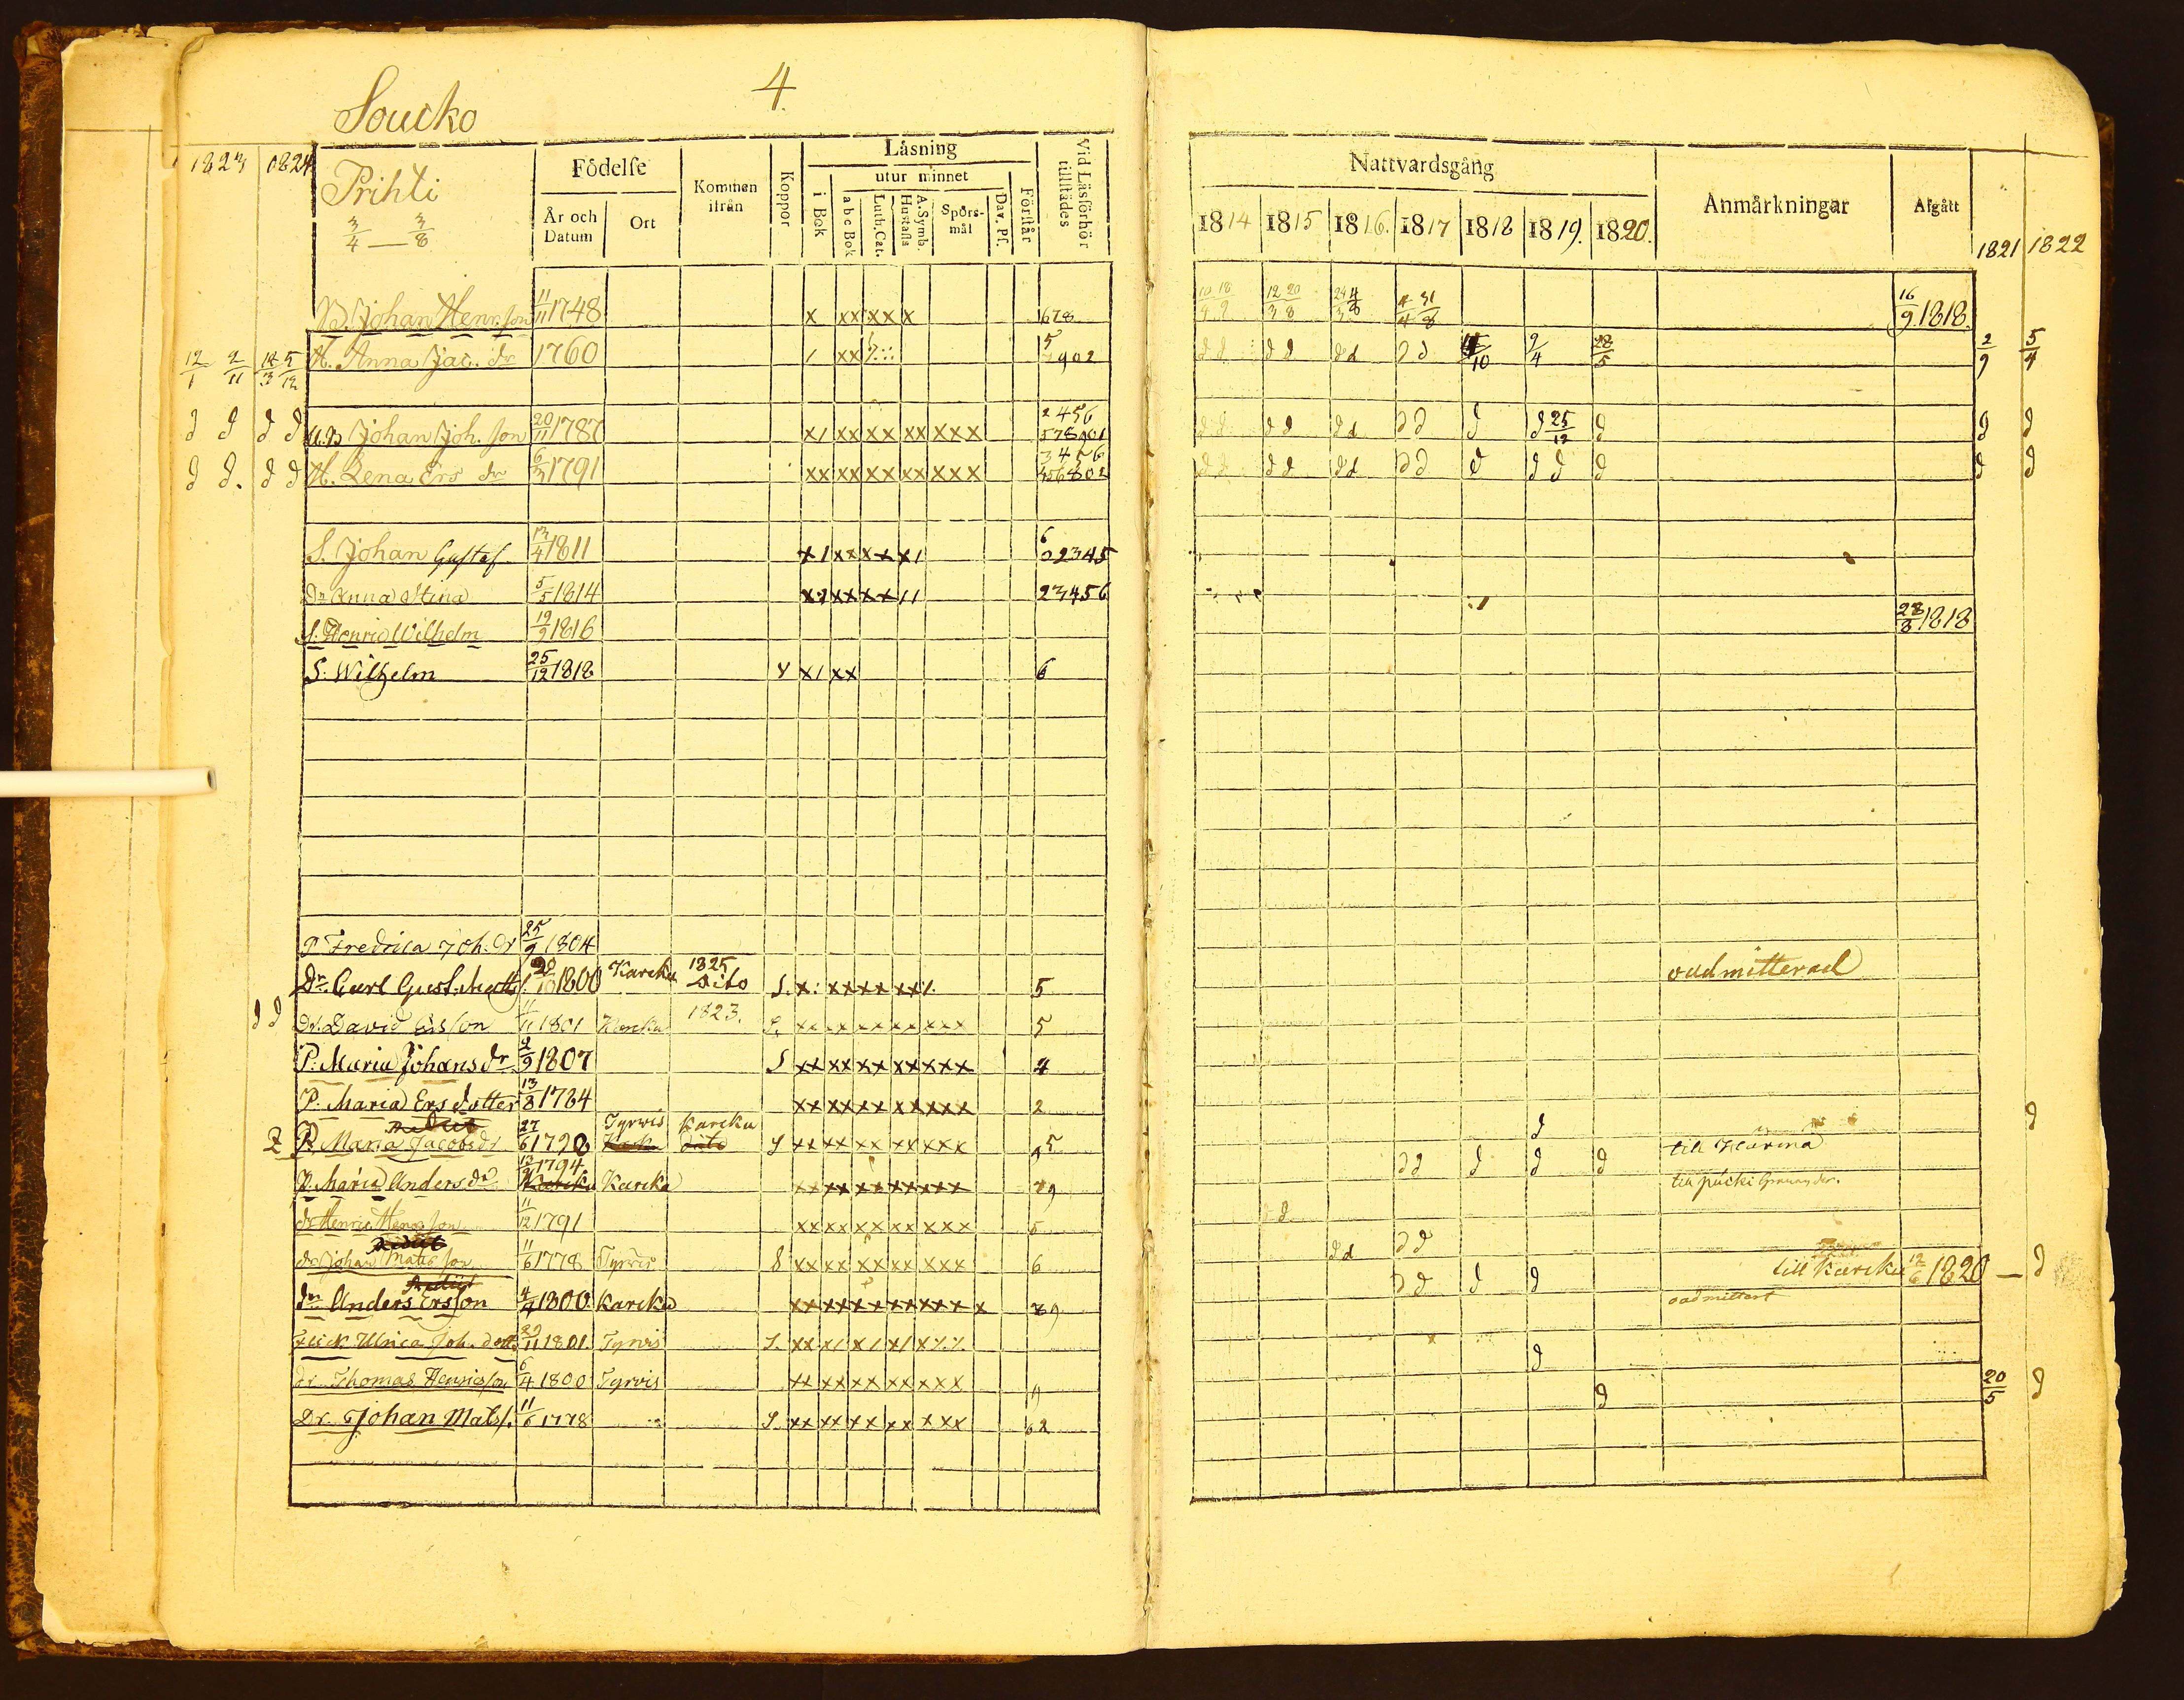 4.
Soucko
1823 1824 Prihti
3/4 — 3/8
Födelse
År och Datum
Ort
Kommen ifrån
Koppor
Läsning
i Bok
utur minnet
a b c Bok
Luth. Cat.
A. Symb. Hustafla
Spörsmål
Dav. Ps.
Förstår
Vid Läsförhör tillstädes
Nattvardsgång
1814 1815 1816. 1817 1818 1819. 1820.
Anmärkningar
Afgått
1821 1822
B. Johan Henr. son 11/11 1748 x xx xx x 678 10/4 18/9 12/3 20/8 24/3 4/8 4/4 31/8 16/9 1818.
12/1 2/11 14/3 5/12 H. Anna Jac. dr 1760 / xx 5 7902 d d d d d d d d /10 9/4 28/5 2/9 5/4
d d d d Johan Joh. son 20/11 1787 x/ xx xx xx xxx 2456 578901 d d d d d d d d d d 25/12 d d d
d d. d d H. Lena Ers dr 6/3 1791 xx xx xx xx xxx 3456 456802 d d d d d d d d d d d d d d
S. Johan Gustaf 13/4 1811 x/ xx xx x/ 6 02345
Dr Anna Stina 5/5 1814 xx xx xx // 23456
S. Henric Wilhelm 19/9 1816 28/8 1818
S: Wilhelm 25/12 1818 x/ xx 6
P Fredrica Joh. dr 25/9 1804
Dr. Carl Gust. Matts 20/10 1800 Karcku 1825 Dito S. x: xx xx xx/. 5 oadmitterad
d d Dr. David Ersson 11/11 1801 Karcku 1823. S. xx xx xx xx xxx 5
P: Maria Johans dr. 2/9 1807 S xx xx xx xx xxx 4
P. Maria Ers dotter 13/8 1784 xx xx xx xx xxx 2
P. Maria Jacobs dr 27/6 1798 Tyrwis Karcku dito S xx xx xx xx xxx 95 d till d
P. Maria Anders dr 13/9 1794 Karcku Karcku xx xx xx xx xxx 79 d d d d d till
dr Henric Henr. son 11/12 1791 xx xx xx xx xxx 5 d
dr Johan Mats son 11/6 1778 Tyrvis S xx xx xx xx xxx 6 d d d d till Karcku 12/6 1820 — d
dr. Anders Ersson 4/4 1800 Karcku xx xx xx xx xxx x 89 d d d d oadmittert
Flick. Ulrica Joh. dott. 29/11 1801. Tyrvis S. xx x/ x/ x/ x
dr Thomas Henricsson 6/4 1800 Tyrvis xx xx xx xx xxx 9 d
Dr. Johan Mats s. 11/6 1778 S. xx xx xx xx xxx 62 d 20/5 d